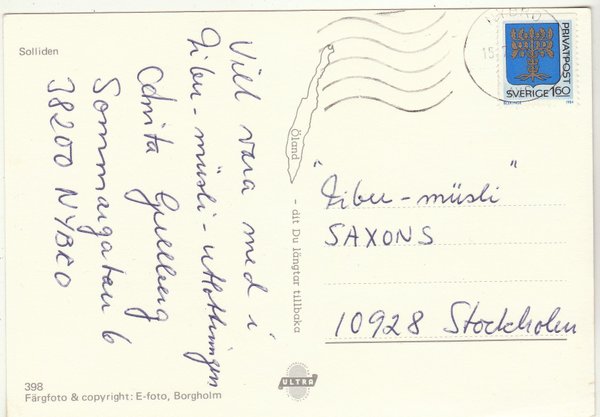 Solliden
Vill vara med i
Fiber-müsli-utlottningen
Anita Gullberg
Sommargatan 6
38200 NYBRO
Öland
- dit Du längtar tillbaka
PRIVATPOST
SVERIGE 160
1984
"Fiber-müsli"
SAXONS
10928 Stockholm
ULTRA
398
Färgfoto & copyright: E-foto, Borgholm